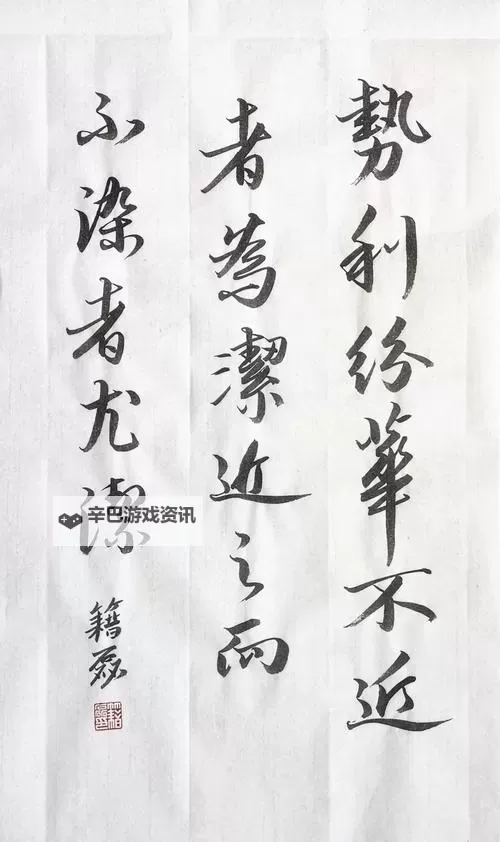 勢利紛華不近
者為潔近之而
不染者尤潔
籍磊
辛巴游戏资讯